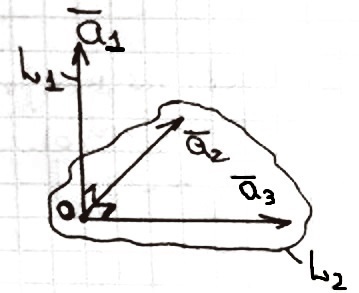 a̅₁
L₁
a̅₂
a̅₃
0
L₂